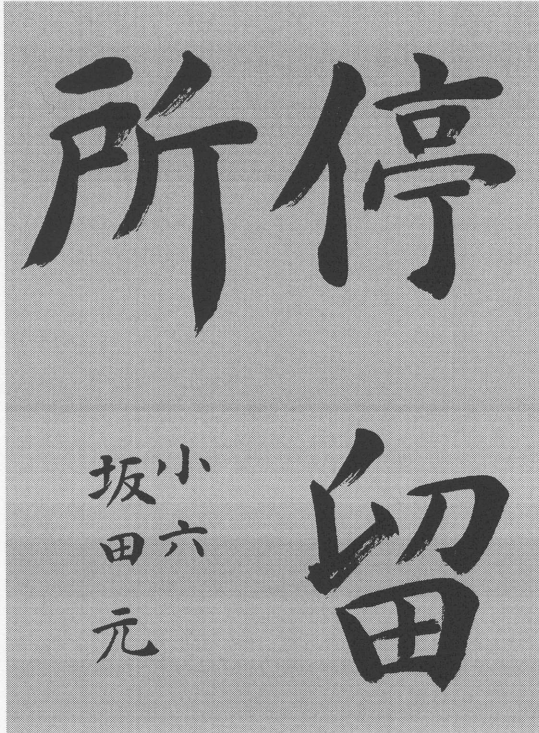 停留
所
小六
坂田元